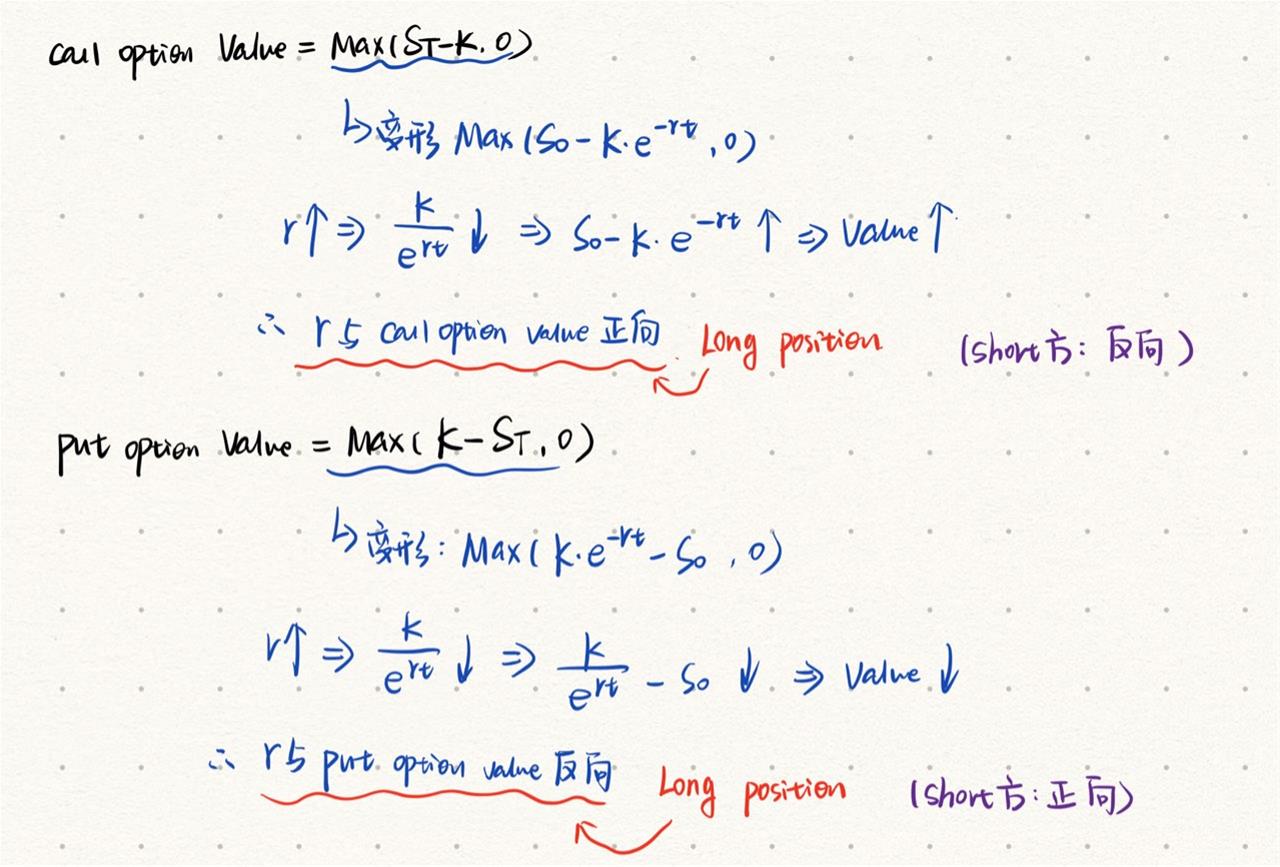 call option Value = Max(S_T-K, 0)
↳变形 Max(S₀-K·e^{-rt}, 0)
r↑ ⇒ K/e^{rt} ↓ ⇒ S₀-K·e^{-rt} ↑ ⇒ Value ↑
∴ r与 call option value 正向 Long position (short方: 反向)
put option Value = Max(K-S_T, 0)
↳变形: Max(K·e^{-rt}-S₀, 0)
r↑ ⇒ K/e^{rt} ↓ ⇒ K/e^{rt} - S₀ ↓ ⇒ Value ↓
∴ r与 put option value 反向 Long position (short方: 正向)